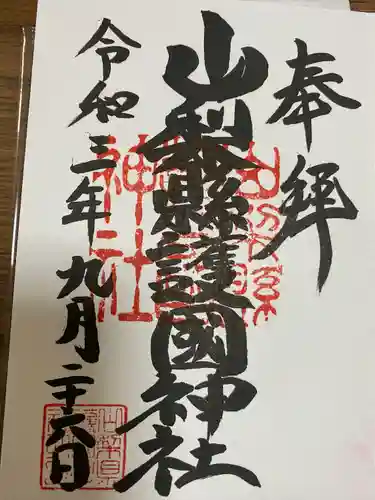 奉拝
山梨縣護國神社
令和三年九月二十六日